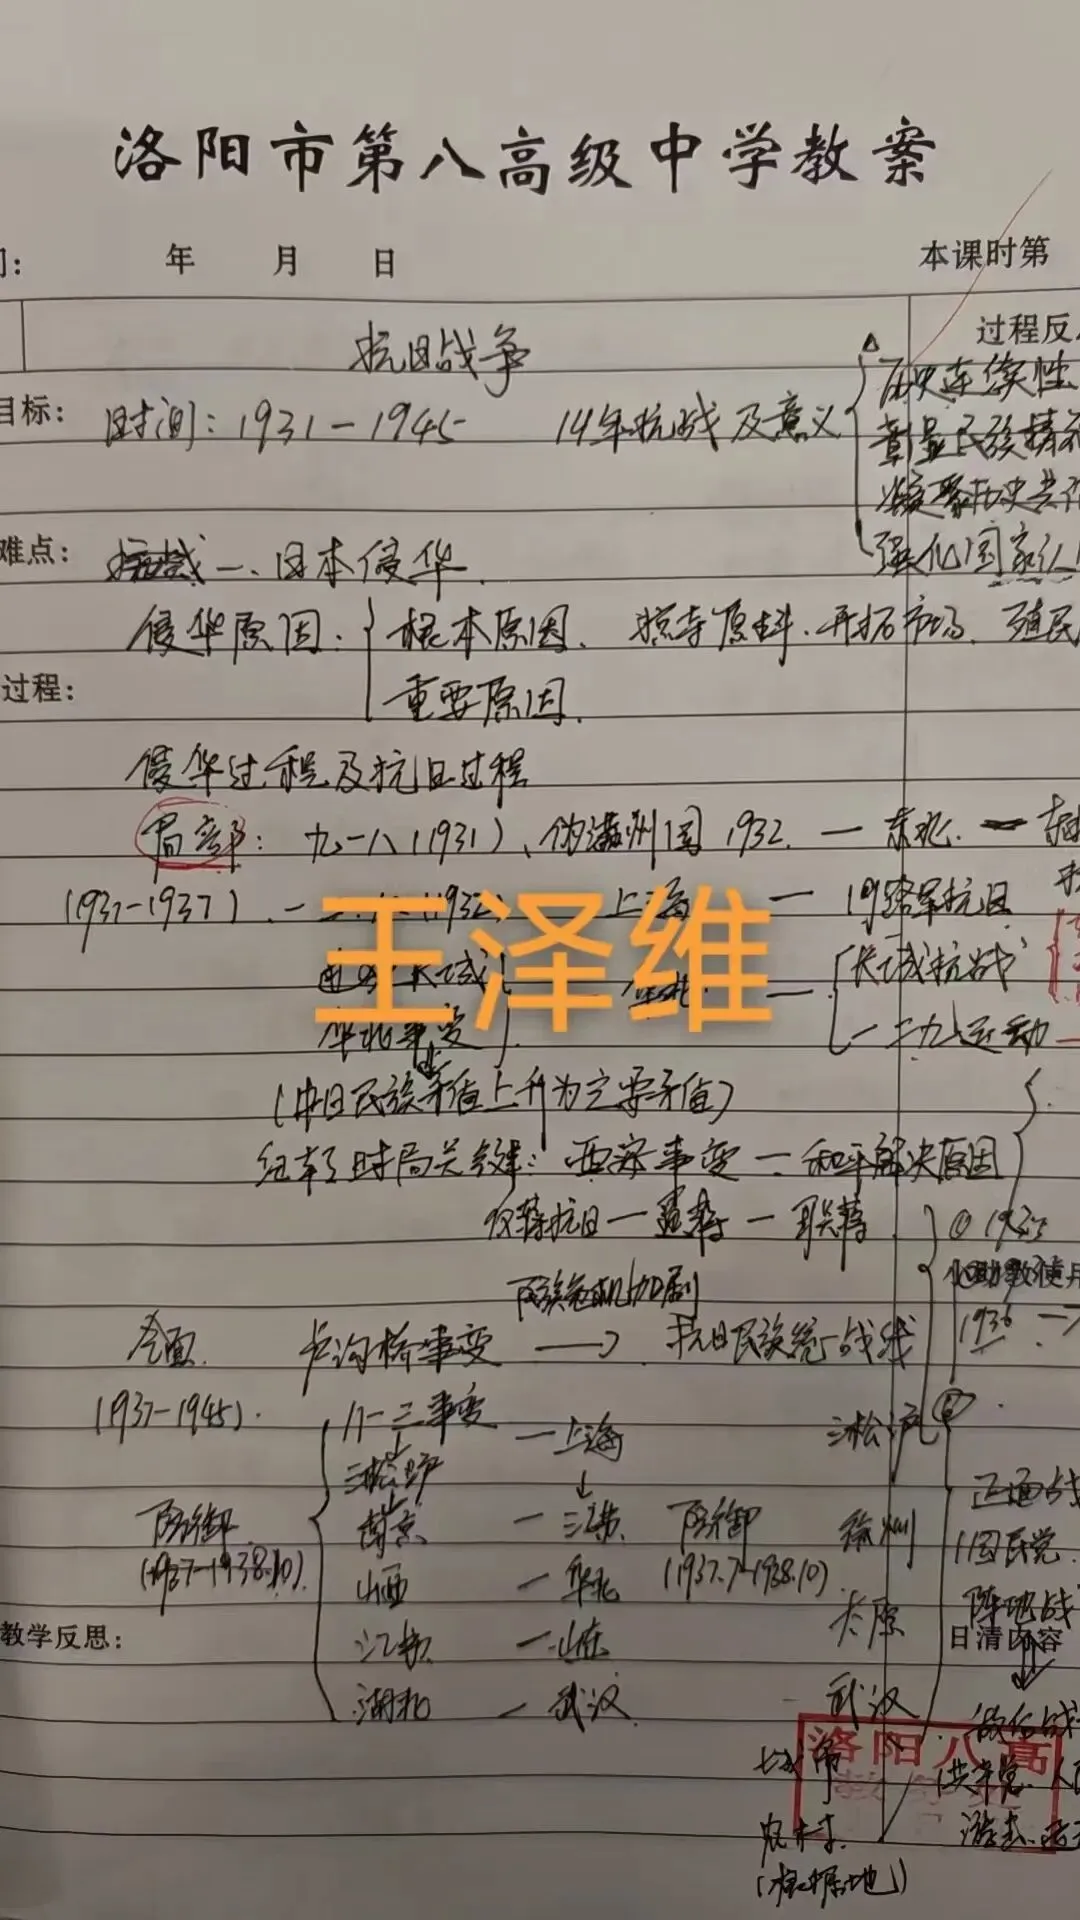 洛阳市第八高级中学教案
年 月 日 本课时第
抗日战争
过程反
目标: 时间:1931-1945 14年抗战及意义
历史连续性
彰显民族精
凝聚历史共
强化国家认
难点: 一、日本侵华
侵华原因: 根本原因. 掠夺原料.开拓市场.殖民
重要原因.
过程:
侵华过程及抗日过程
局部: 九一八(1931)、伪满州国 1932. — 东北. —
(1931-1937). 一二八(1932 上海 — 19路军抗日
王泽维
长城 华北 — 长城抗战
华北事变 一二九运动
(中日民族矛盾上升为主要矛盾)
扭转了时局关键: 西安事变 — 和平解决原因
反蒋抗日 — 逼蒋 — 联蒋
① 1935
民族危机加剧
1936
全面. 卢沟桥事变 → 抗日民族统一战线
(1937-1945).
八一三事变 — 上海 淞沪 ②
淞沪
正面战
防御 南京 — 江苏 防御 徐州
(1937-1938.10). (1937.7-1938.10).
国民党.
山西 — 华北
阵地战
教学反思: 江苏 — 山东 太原 日清内容
湖北 — 武汉 武汉
敌后战
洛阳八高
城市 共产党.人
农村. 游击.
(根据地)